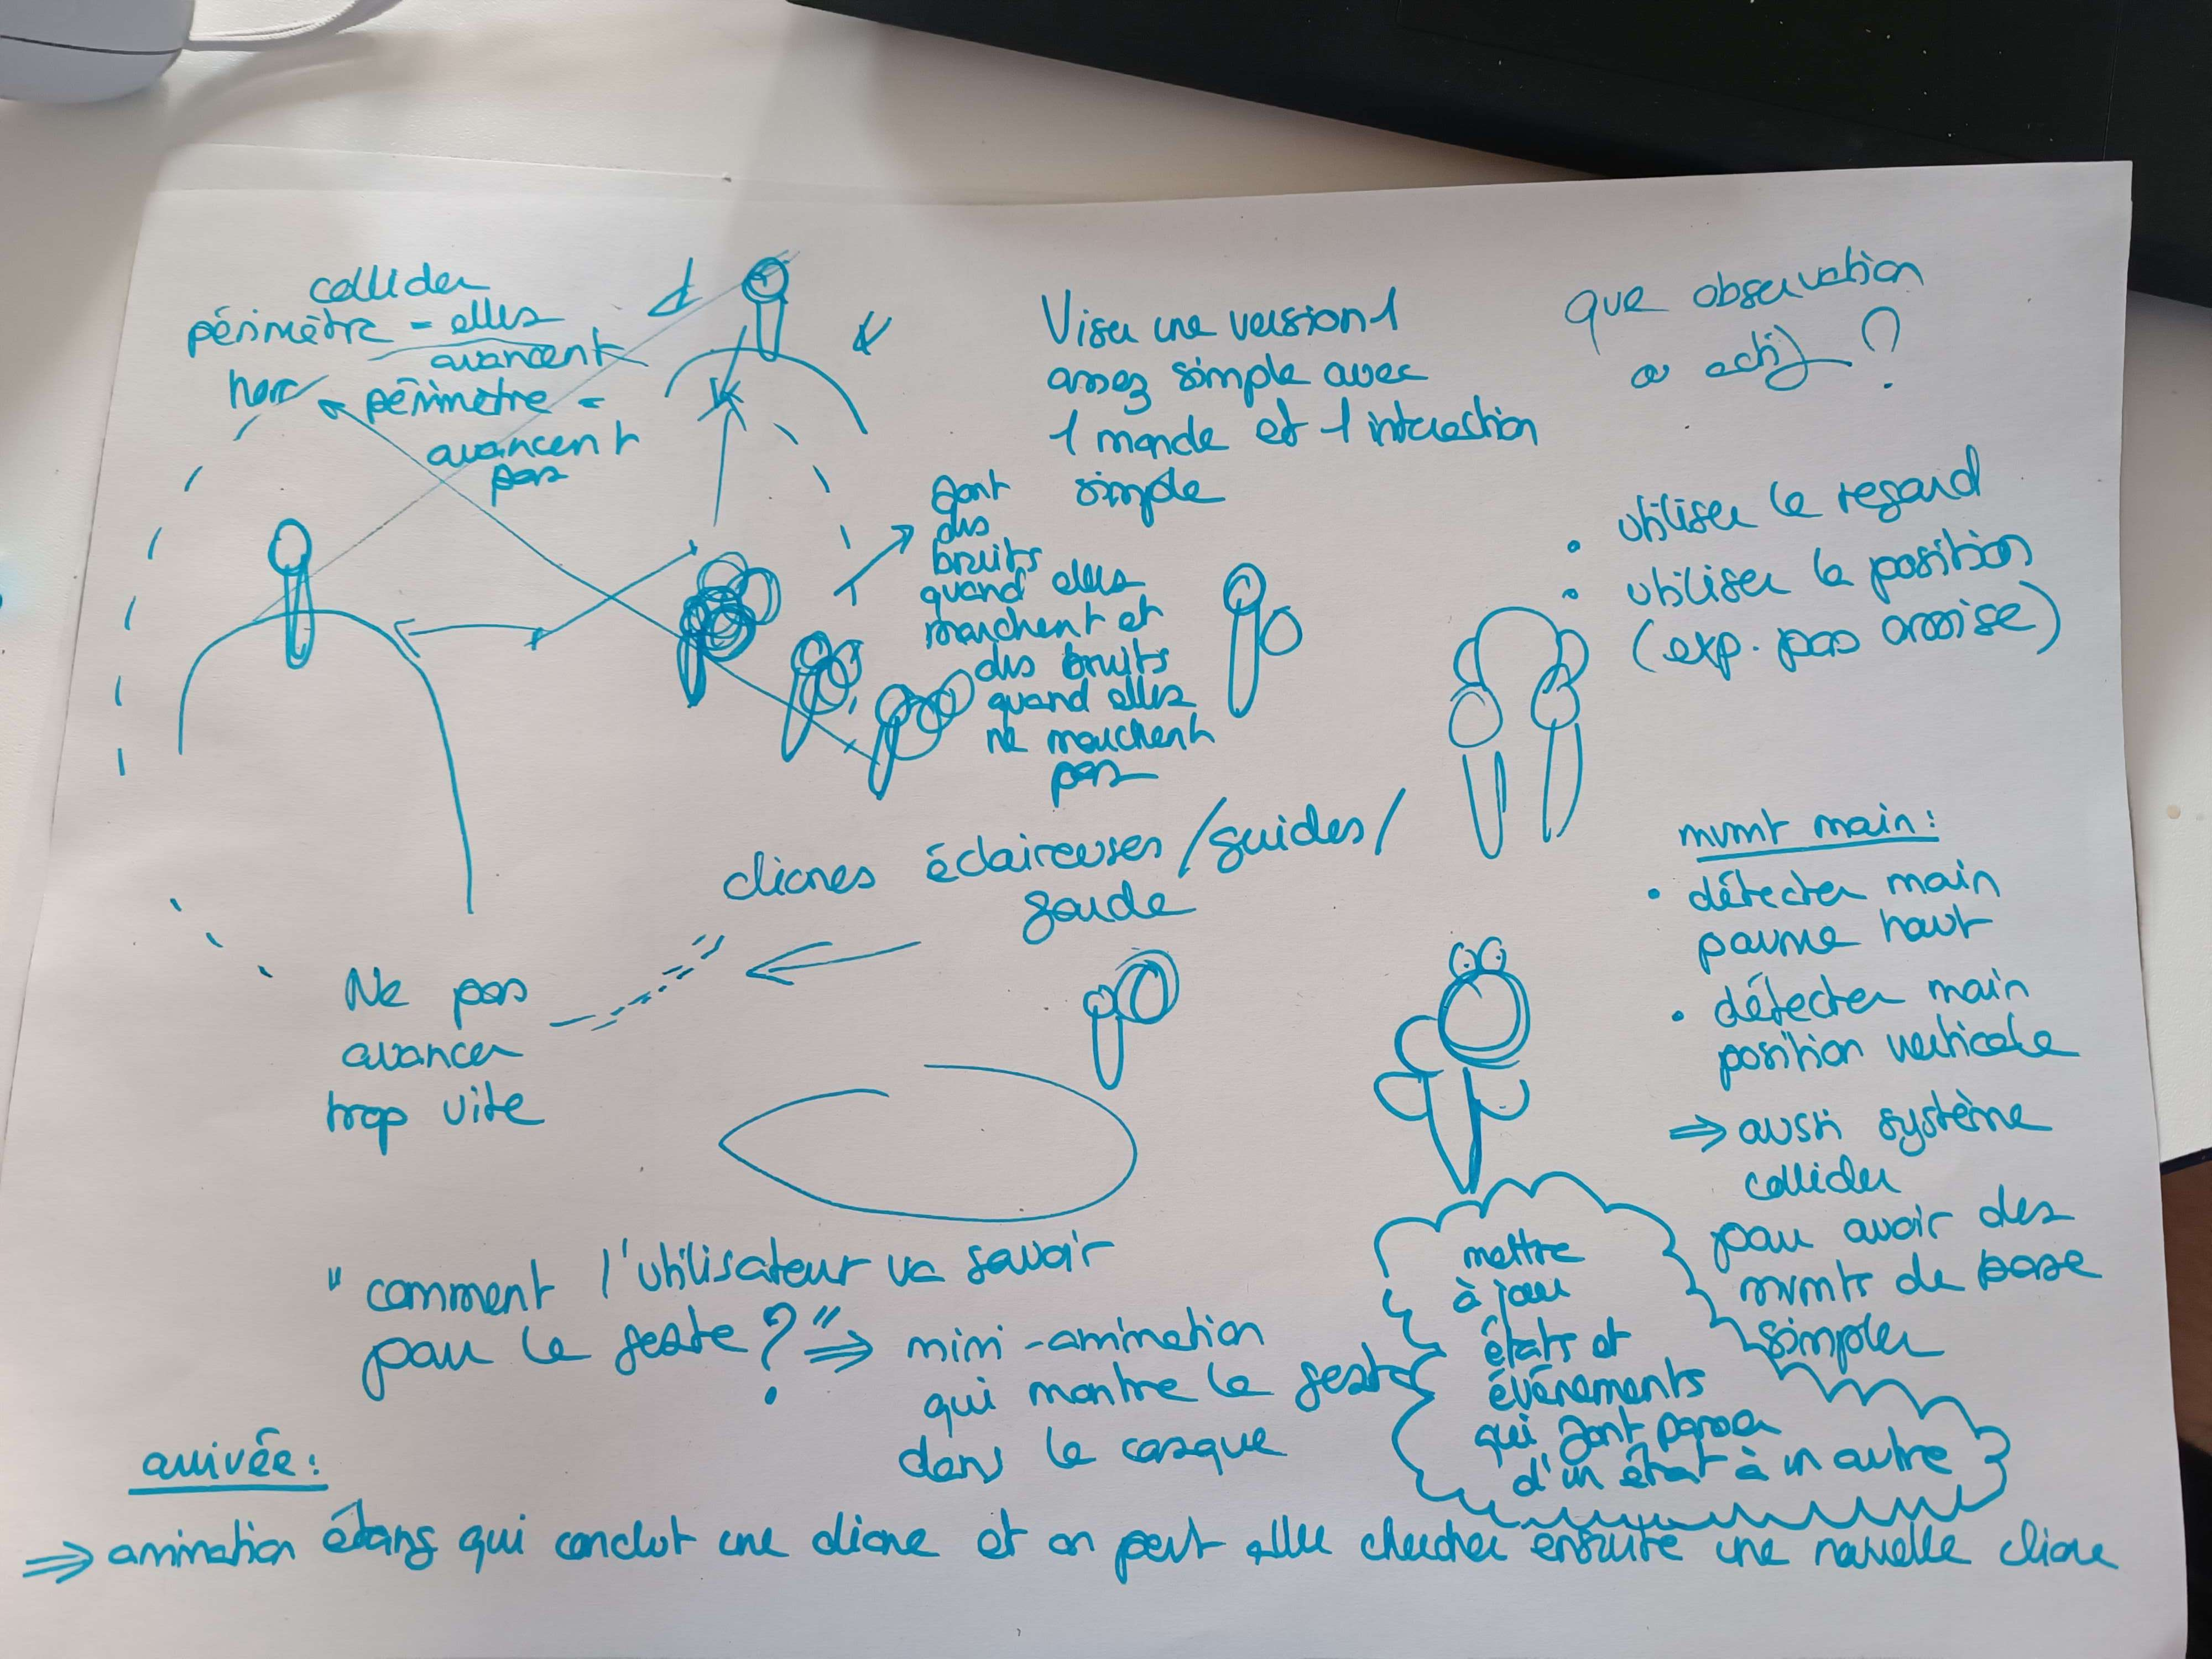 collider
périmètre = elles
avancent
hors périmètre =
avancent
pas
Viser une version 1
assez simple avec
1 monde et 1 interaction
simple
que observation
ou actif ?
font
des
bruits
quand elles
marchent et
des bruits
quand elles
ne marchent
pas
• utiliser le regard
• utiliser la position
(exp. pas assise)
cliones éclaireuses / guides /
garde
Ne pas
avancer
trop vite
mvmt main :
• détecter main
paume haut
• détecter main
position verticale
⇒ aussi système
collider
pour avoir des
mvmts de base
simples
"comment l'utilisateur va savoir
pour le geste ?" ⇒ mini-animation
qui montre le geste
dans le casque
mettre
à jour
états et
événements
qui font passer
d'un état à un autre
arrivée :
⇒ animation étang qui conclut une clione et on peut aller chercher ensuite une nouvelle clione